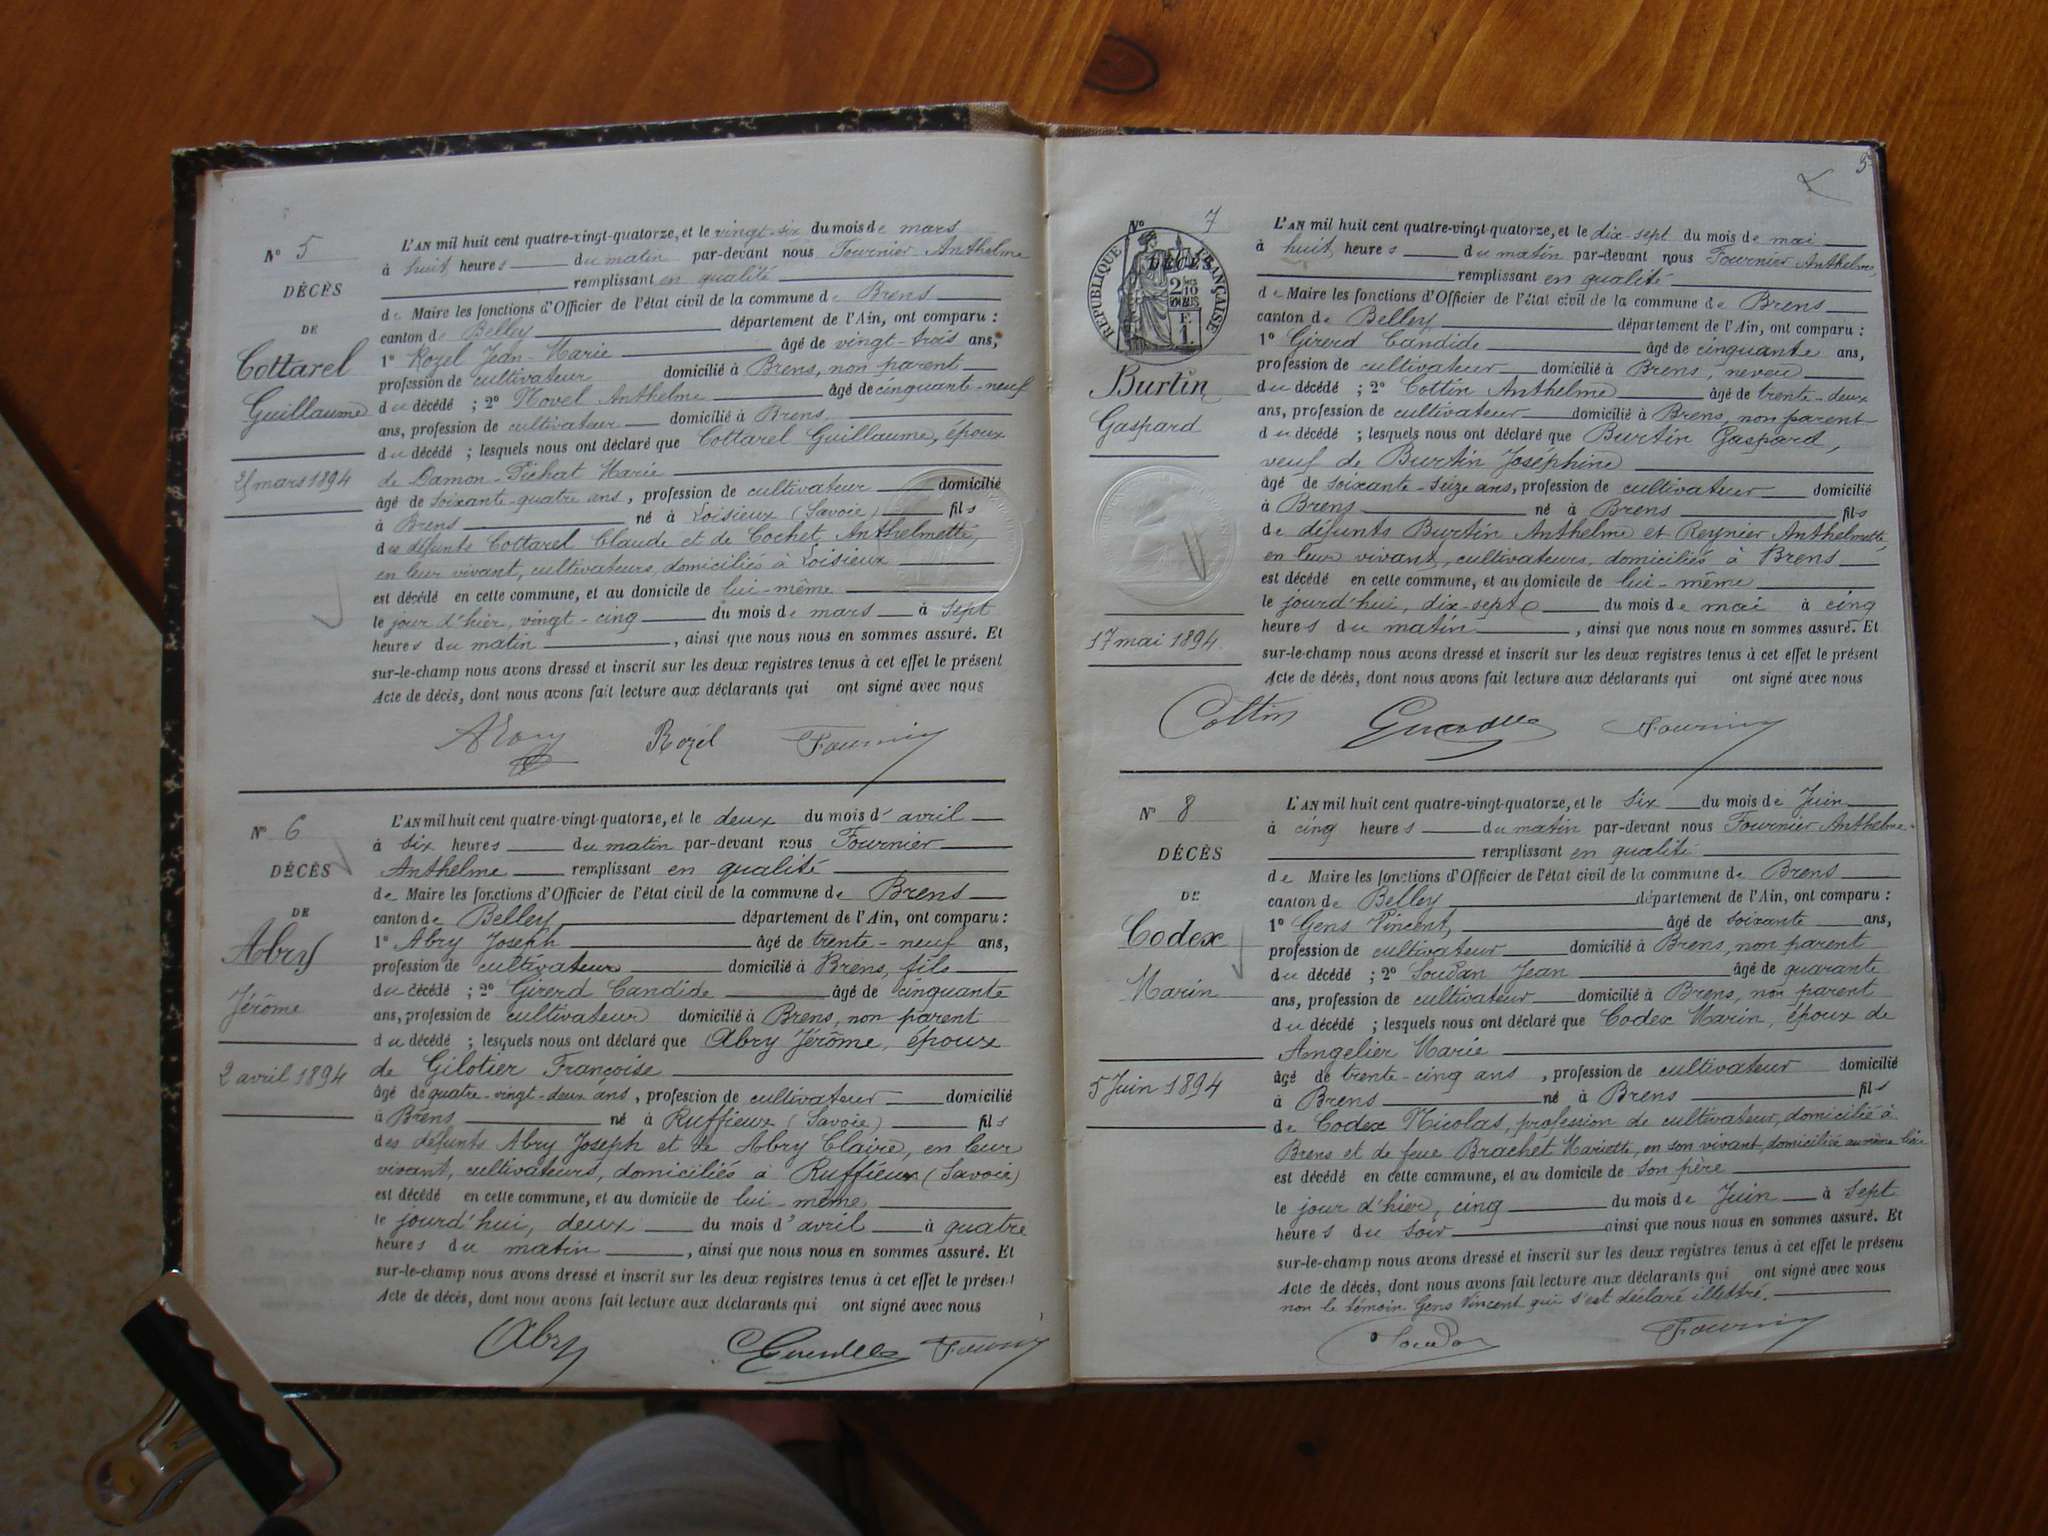 N° 5
DÉCÈS
DE
Cottarel
Guillaume
25 mars 1894
L'AN mil huit cent quatre-vingt-quatorze, et le vingt-six du mois de mars
à huit heures du matin par-devant nous Fournier Anthelme
remplissant en qualité
de Maire les fonctions d'Officier de l'état civil de la commune de Brens
canton de Belley département de l'Ain, ont comparu :
1° Rozel Jean-Marie âgé de vingt-trois ans,
profession de cultivateur domicilié à Brens, non parent
du décédé ; 2° Novel Anthelme âgé de cinquante-neuf
ans, profession de cultivateur domicilié à Brens,
du décédé ; lesquels nous ont déclaré que Cottarel Guillaume, époux
de Damon-Pichat Marie
âgé de soixante-quatre ans, profession de cultivateur domicilié
à Brens né à Loisieux (Savoie) fils
des défunts Cottarel Claude et de Cochet Anthelmette,
en leur vivant, cultivateurs, domiciliés à Loisieux
est décédé en cette commune, et au domicile de lui-même
le jour d'hier, vingt-cinq du mois de mars à sept
heures du matin, ainsi que nous nous en sommes assuré. Et
sur-le-champ nous avons dressé et inscrit sur les deux registres tenus à cet effet le présent
Acte de décès, dont nous avons fait lecture aux déclarants qui ont signé avec nous
Rozel Fournier
N° 6
DÉCÈS
DE
Abry
Jérôme
2 avril 1894
L'AN mil huit cent quatre-vingt-quatorze, et le deux du mois d'avril
à six heures du matin par-devant nous Fournier
Anthelme remplissant en qualité
de Maire les fonctions d'Officier de l'état civil de la commune de Brens
canton de Belley, département de l'Ain, ont comparu :
1° Abry Joseph âgé de trente-neuf ans,
profession de cultivateur domicilié à Brens, fils
du décédé ; 2° Girerd Candide âgé de cinquante
ans, profession de cultivateur domicilié à Brens, non parent
du décédé ; lesquels nous ont déclaré que Abry Jérôme, époux
de Gilotier Françoise
âgé de quatre-vingt-deux ans, profession de cultivateur domicilié
à Brens né à Ruffieux (Savoie) fils
des défunts Abry Joseph et de Abry Claire, en leur
vivant, cultivateurs, domiciliés à Ruffieux (Savoie)
est décédé en cette commune, et au domicile de lui-même
le jourd'hui, deux du mois d'avril à quatre
heures du matin, ainsi que nous nous en sommes assuré. Et
sur-le-champ nous avons dressé et inscrit sur les deux registres tenus à cet effet le présent
Acte de décès, dont nous avons fait lecture aux déclarants qui ont signé avec nous
Abry Fournier
N° 7
RÉPUBLIQUE FRANÇAISE
DÉCÈS
Burtin
Gaspard
17 mai 1894.
L'AN mil huit cent quatre-vingt-quatorze, et le dix-sept du mois de mai
à huit heures du matin par-devant nous Fournier Anthelme,
remplissant en qualité
de Maire les fonctions d'Officier de l'état civil de la commune de Brens
canton de Belley département de l'Ain, ont comparu :
1° Girerd Candide âgé de cinquante ans,
profession de cultivateur domicilié à Brens, neveu
du décédé ; 2° Cottin Anthelme âgé de trente-deux
ans, profession de cultivateur domicilié à Brens, non parent
du décédé ; lesquels nous ont déclaré que Burtin Gaspard,
veuf de Burtin Joséphine
âgé de soixante-seize ans, profession de cultivateur domicilié
à Brens né à Brens fils
de défunts Burtin Anthelme et Reynier Anthelmette,
en leur vivant, cultivateurs, domiciliés à Brens
est décédé en cette commune, et au domicile de lui-même
le jourd'hui, dix-sept du mois de mai à cinq
heures du matin, ainsi que nous nous en sommes assuré. Et
sur-le-champ nous avons dressé et inscrit sur les deux registres tenus à cet effet le présent
Acte de décès, dont nous avons fait lecture aux déclarants qui ont signé avec nous
Cottin Fournier
N° 8
DÉCÈS
DE
Codex
Marin
5 Juin 1894
L'AN mil huit cent quatre-vingt-quatorze, et le six du mois de Juin
à cinq heures du matin par-devant nous Fournier Anthelme
remplissant en qualité
de Maire les fonctions d'Officier de l'état civil de la commune de Brens
canton de Belley département de l'Ain, ont comparu :
1° Gens Vincent, âgé de soixante ans,
profession de cultivateur domicilié à Brens, non parent
du décédé ; 2° Soudan Jean âgé de quarante
ans, profession de cultivateur domicilié à Brens, non parent
du décédé ; lesquels nous ont déclaré que Codex Marin, époux de
Angelier Marie
âgé de trente-cinq ans, profession de cultivateur domicilié
à Brens né à Brens fils
de Codex Nicolas, profession de cultivateur, domicilié à
Brens et de feue Brachet Mariette, en son vivant, domiciliée au même lieu
est décédé en cette commune, et au domicile de son père
le jour d'hier, cinq du mois de Juin à sept
heures du soir ainsi que nous nous en sommes assuré. Et
sur-le-champ nous avons dressé et inscrit sur les deux registres tenus à cet effet le présent
Acte de décès, dont nous avons fait lecture aux déclarants qui ont signé avec nous
non le témoin Gens Vincent qui s'est déclaré illettré.
Fournier